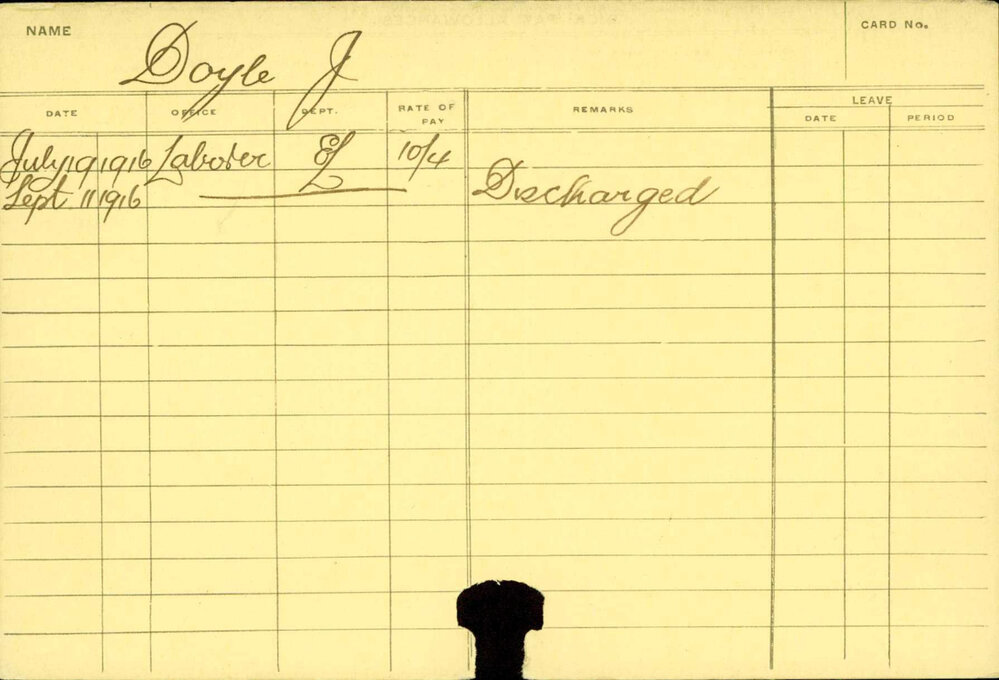 NAME Doyle J CARD No.
DATE OFFICE DEPT. RATE OF PAY REMARKS LEAVE
DATE PERIOD
July 19 1916 Laborer EL 10/4
Sept 11 1916 Discharged